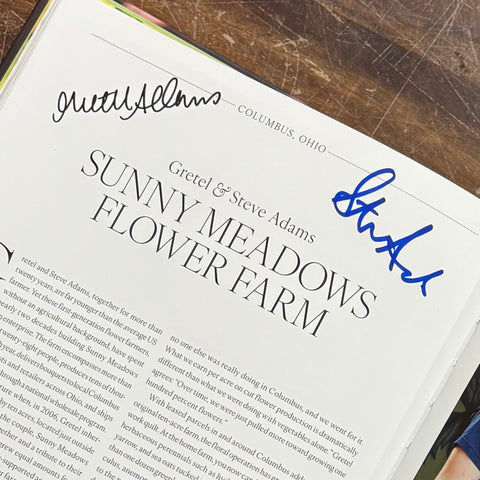 Gretel Adams
COLUMBUS, OHIO
Steve Adams
Gretel & Steve Adams
SUNNY MEADOWS
FLOWER FARM
retel and Steve Adams, together for more than
twenty years, are far younger than the average US
farmer. Yet these first-generation flower farmers,
without an agricultural background, have spent
nearly two decades building Sunny Meadows
enterprise. The farm encompasses more than
twenty-eight people, produces tens of thou-
year, delivers bouquets to local Columbus
ts and retailers across Ohio, and ships
through a national wholesale program.
ture when, in 2006, Gretel inher-
by ten acres, located just outside
the couple, Sunny Meadows
gether and a tribute to their
rew equal amounts
no one else was really doing in Columbus, and we went for it.
What we earn per acre on cut flower production is dramatically
different than what we were doing with vegetables alone." Gretel
agrees. "Over time, we were just pulled more toward growing one
hundred percent flowers."
With leased parcels in and around Columbus
original ten-acre farm, the floral operation has
work quilt. At the home farm, you now
herbaceous perennials, such as
yarrow, and sea oats tucked
than one dozen
culus,